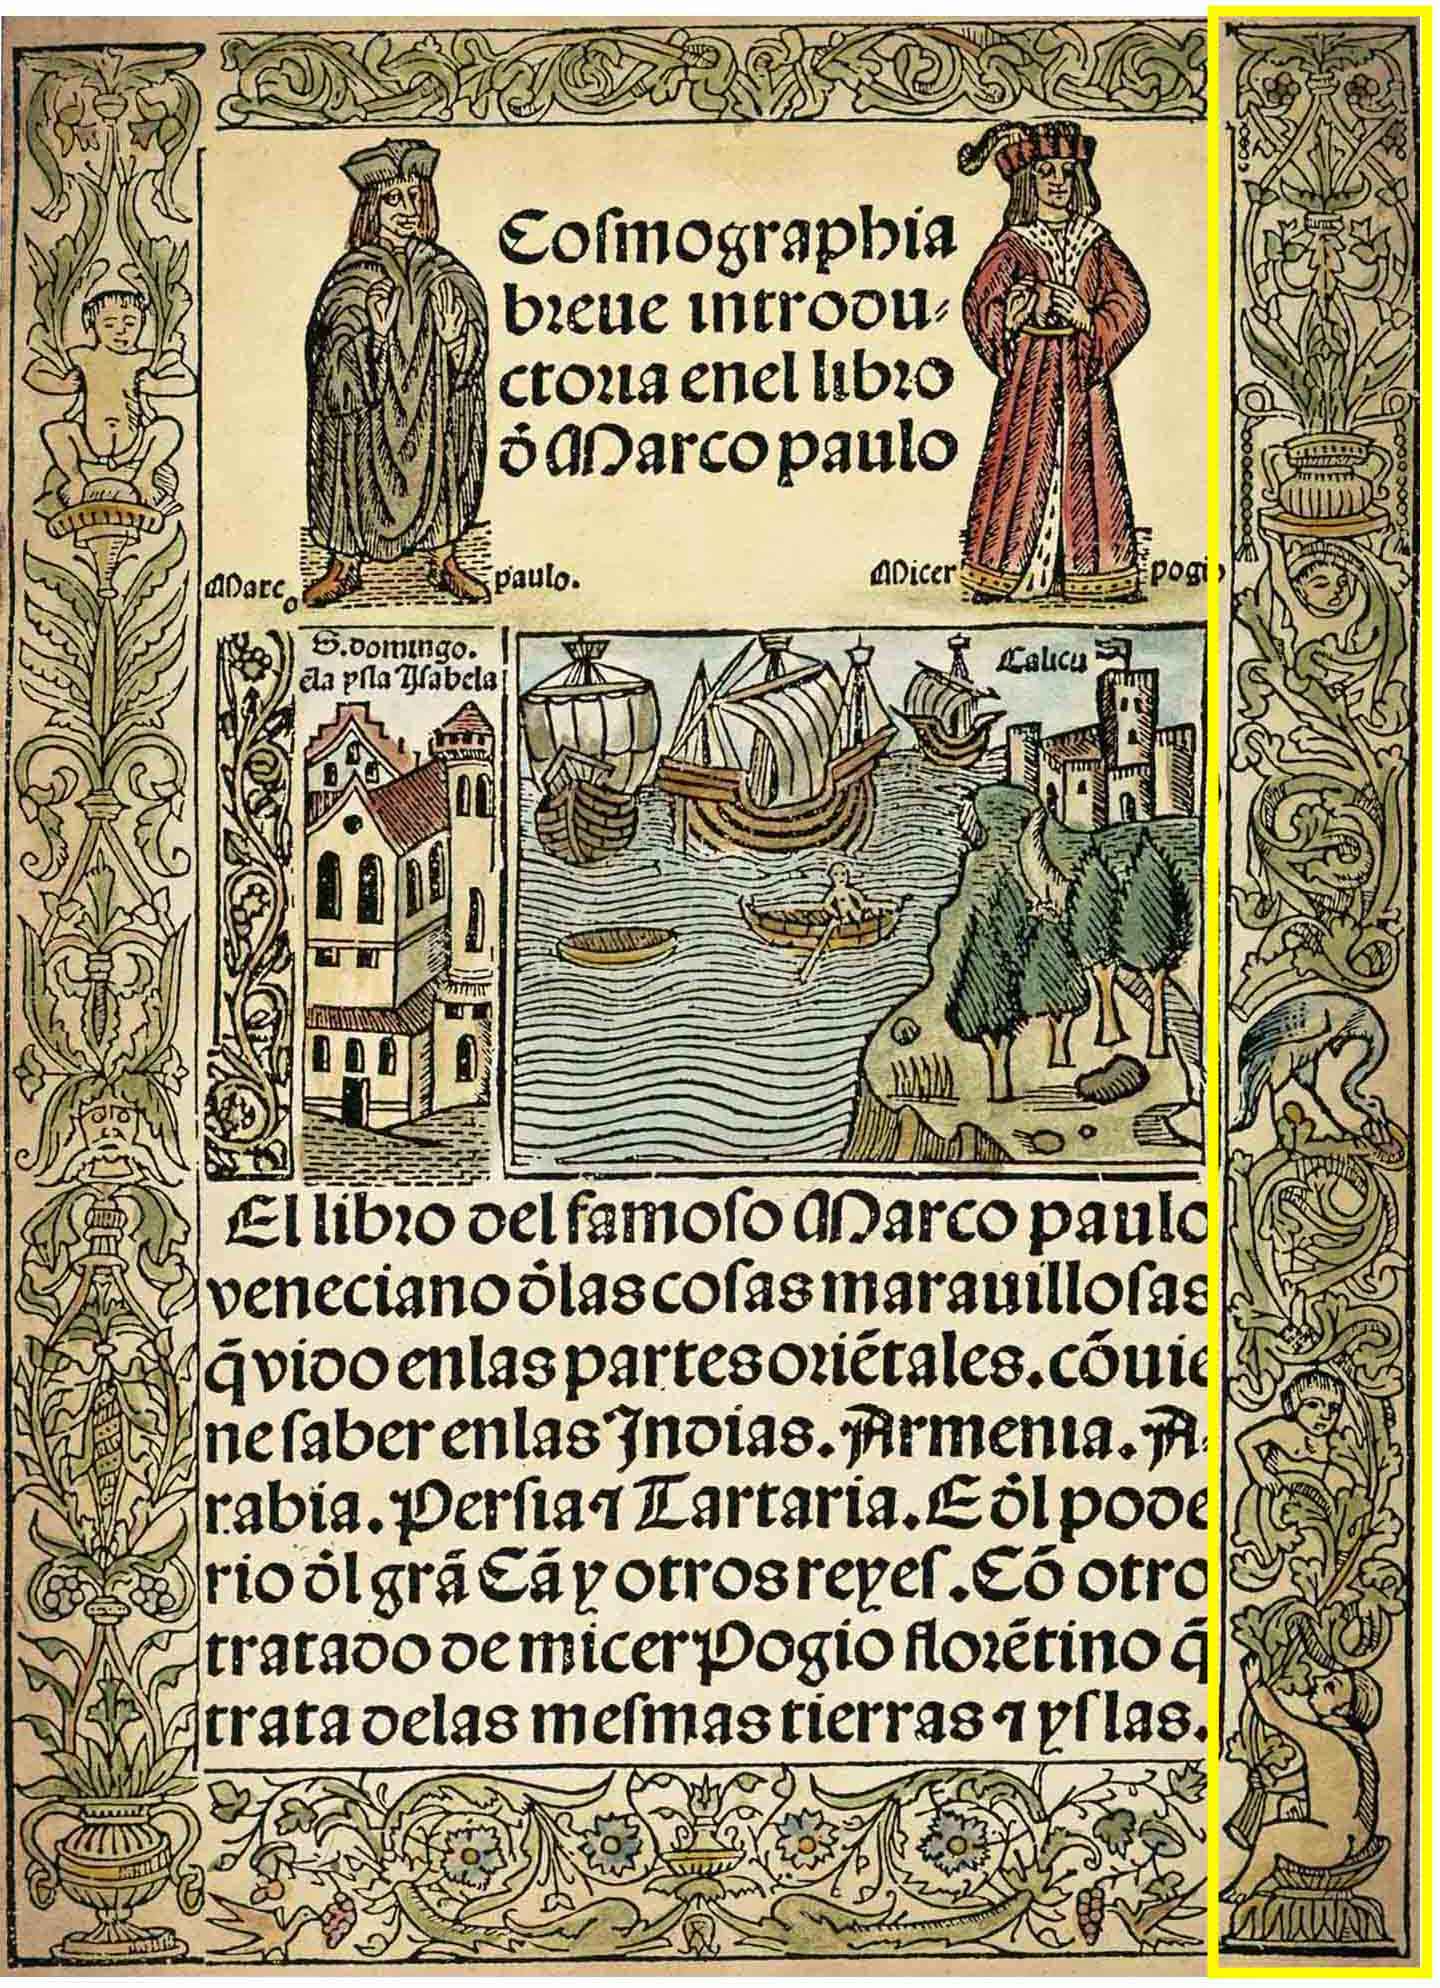 Coſmographia
breue introdu⸗
ctoria enel libro
ď Marco paulo
Marco paulo.
Micer pogio
S. domingo.
ẽla yſla Yſabela
Calicu
El libro del famoſo Marco paulo
veneciano ďlas coſas marauilloſas
q̃ vido enlas partes oriẽtales. cõuie
ne ſaber enlas Indias. Armenia. A⸗
rabia. Perſia ⁊ Tartaria. E ďl pode
rio ďl grã Cã y otros reyeſ. Cõ otro
tratado de micer Pogio florẽtino q̃
trata delas meſmas tierras ⁊ yſlas.